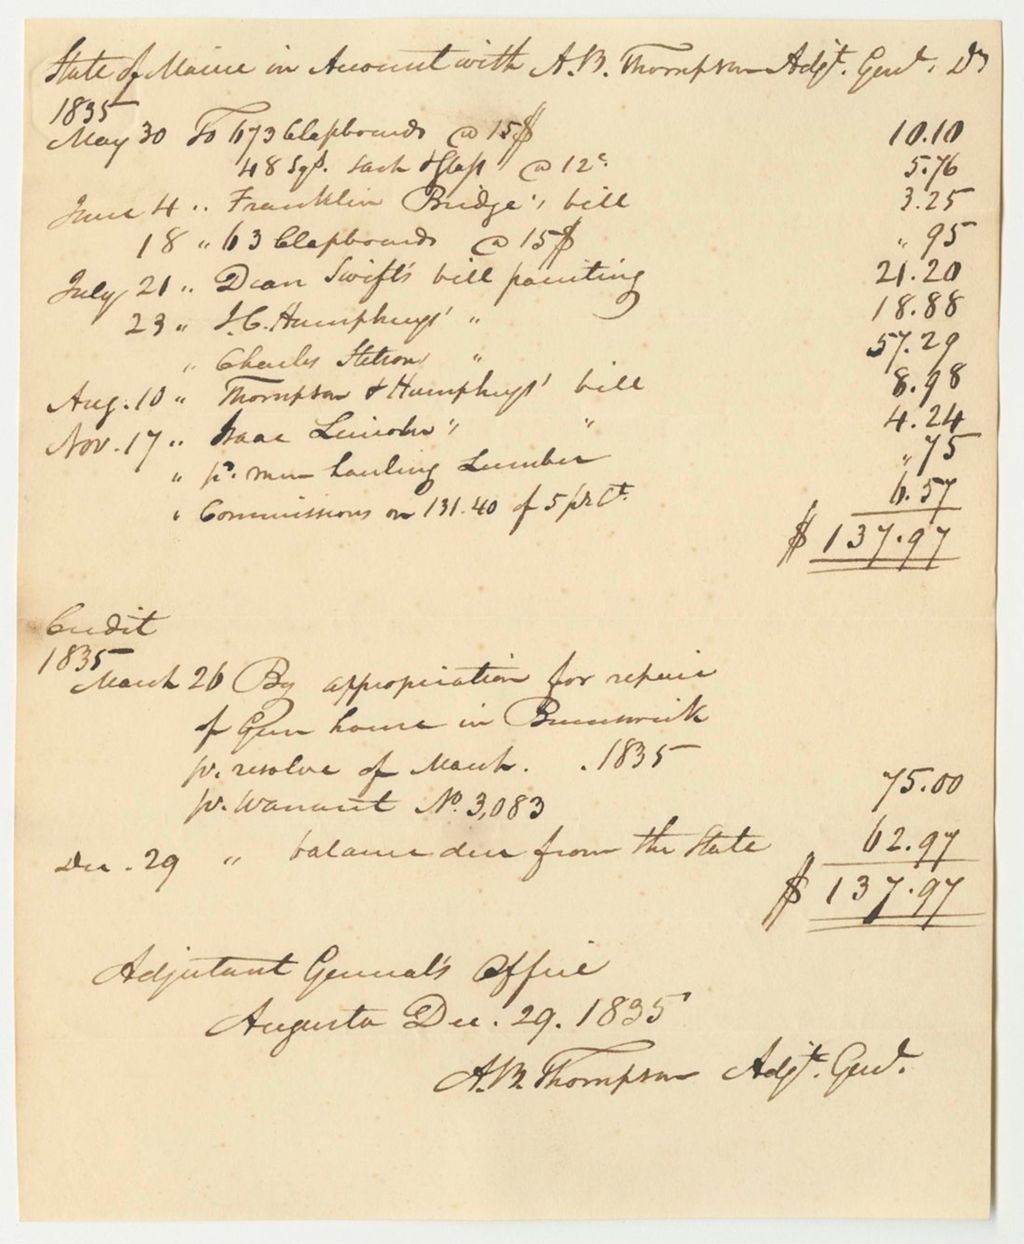 State of Maine in Account with A.B. Thompson Adjt. Genl. Dr
1835
May 30 To 673 Clapboards @ 15$ 10.10
48 Sqs. sash & Glass @ 12c. 5.76
June 4 " Franklin Bridge's bill 3.25
18 " 63 Clapboards @ 15$ " 95
July 21 " Dean Swift's bill painting 21.20
23 " J.C. Humphreys' " 18.88
" Charles Stetson " 57.29
Aug. 10 " Thompson & Humphreys' bill 8.98
Nov. 17 " Isaac Lincoln's " 4.24
" pd. man hauling Lumber " 75
" Commissions on 131.40 of 5 pr Ct. 6.57
$ 137.97
Credit
1835
March 26 By appropriation for repair
of Gun house in Brunswick
pr. resolve of March . 1835
pr. Warrant No. 3,083 75.00
Dec. 29 " balance due from the State 62.97
$ 137.97
Adjutant General's Office
Augusta Dec. 29. 1835
A.B. Thompson Adjt. Genl.